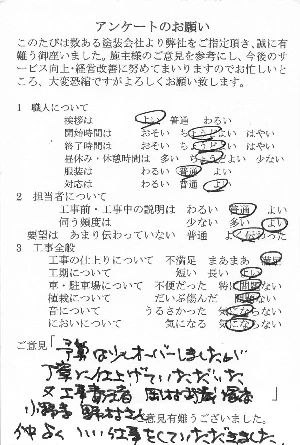 アンケートのお願い
このたびは数ある塗装会社より弊社をご指定頂き、誠に有
難う御座いました。施主様のご意見を参考にし、今後のサ
ービス向上・経営改善に努めてまいりますのでお忙しいとこ
ろ、大変恐縮ですがよろしくお願い致します。
1 職人について
挨拶は よい 普通 わるい
開始時間は おそい ちょうどよい はやい
終了時間は おそい ちょうどよい はやい
昼休み・休憩時間は 多い ちょうどよい 少ない
服装は わるい 普通 よい
対応は わるい 普通 よい
2 担当者について
工事前・工事中の説明は わるい 普通 よい
伺う頻度は 少ない 多い よい
要望は あまり伝わっていない 普通 よく伝わった
3 工事全般
工事の仕上りについて 不満足 まあまあ 満足
工期について 短い 長い よい
車・駐車場について 不便だった 特に問題ない
植栽について だいぶ傷んだ 問題ない
音について うるさかった 気にならない
においについて 気になる 気にならない
ご意見「予算は少しオーバーしましたが
丁寧に仕上げていただいた
又工事責任者 岡村
小野寺 野村さん
ご意見有難うございました。
仲よく いい仕事をしていただきました